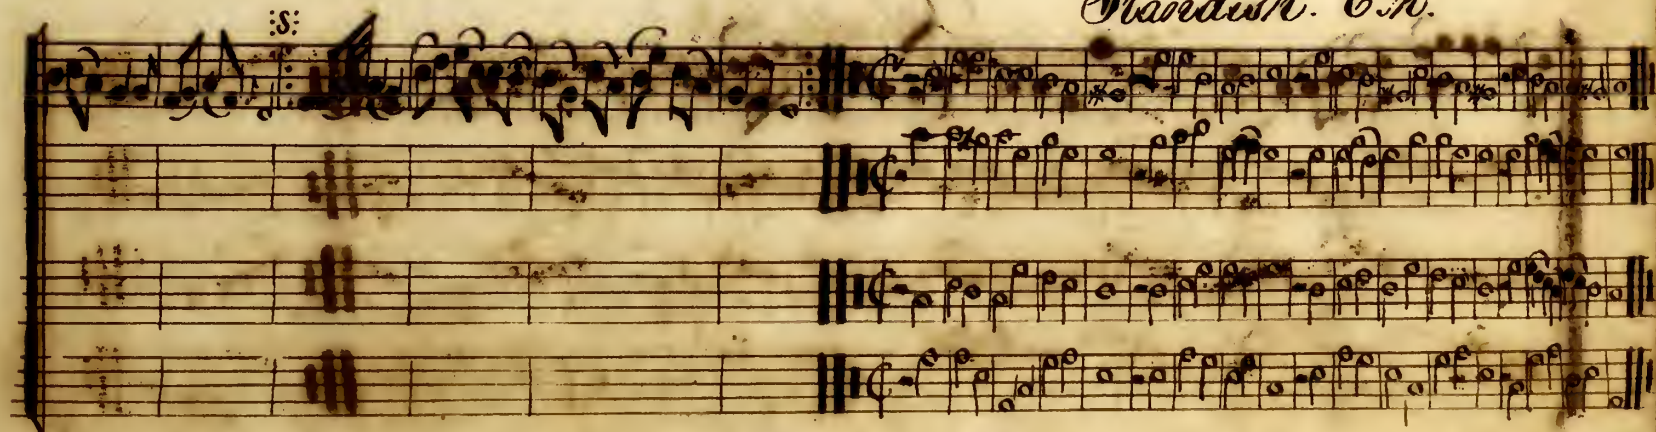 :S:
Standish. C.M.